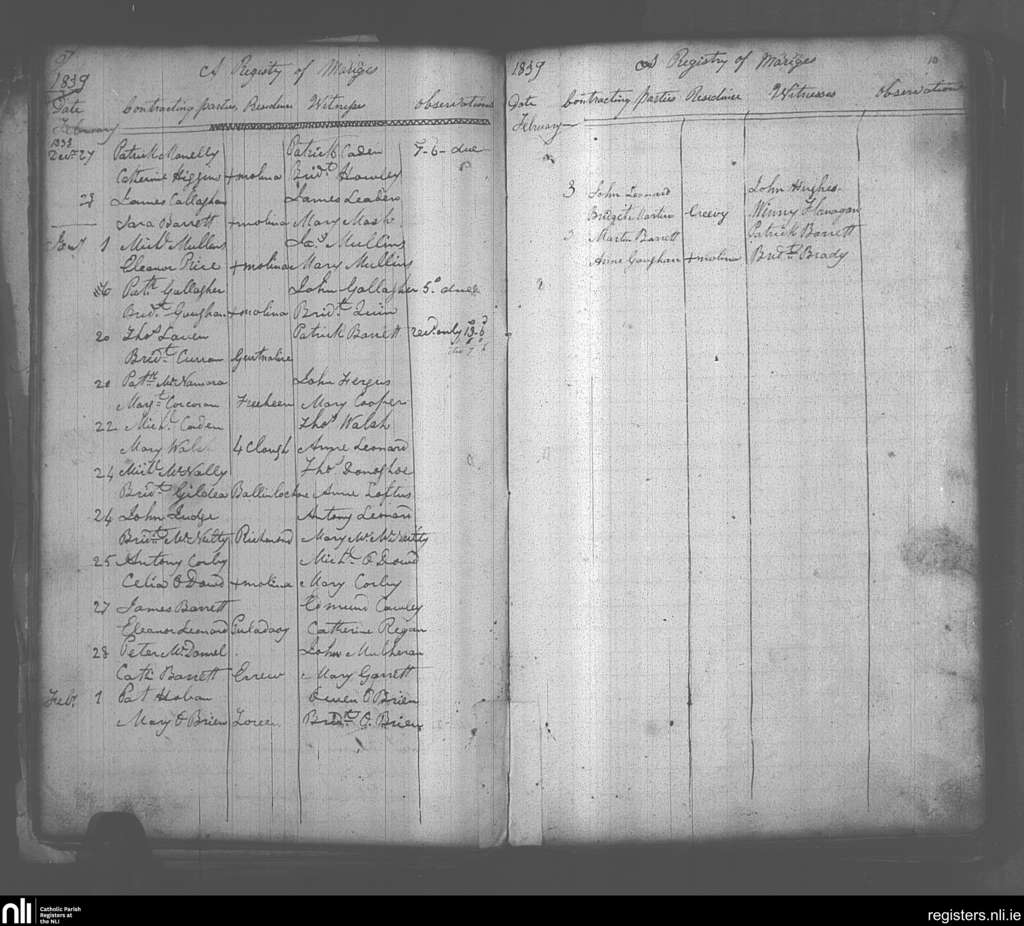 9
1839
A Registry of Mariges
Date Contracting parties Residence Witneses observations
February
1838
Decr 27 Patrick Nanelly Patrick Caden 7-6- due
Catherine Higgins +molina Bridt. Hawley
James Callaghan James Leaden
Sara Barrett +molina Mary Mask
Jany 1 Michl. Mullens Jas. Mullins
Eleanor Price +molina Mary Mullins
6 Patk Gallagher John Gallagher 5s. due
Bridt. Gaughan +molina Bridt. Quin
20 Thos Laven Patrick Barrett recd. only 13-6
Bridt. Curran Gurtnalire
20 Patk McNamara John Fergus
Margt. Corcoran Freeheen Mary Cooper
22 Michl. Caden Thos Walsh
Mary Walsh 4 Clough Anne Leonard
24 Michl. McNally Thos Donoghoe
Bridt. Gildea Ballinlochoe Anne Loftus
24 John Judge Antony Leonard
Bridt. McNulty Richmond Mary McNulty
25 Antony Corby Michl. O Dowd
Celia O Dowd +molina Mary Corby
27 James Barrett Edmund Cawley
Eleanor Leonard Catherine Regan
28 Peter McDonnel John Mulheran
Cath Barrett Errew Mary Garrett
Feby 1 Pat Hoban Owen O Brien
Mary O Brien Bridt. O. Brien
1839 A Registry of Mariges 10
Date Contracting Parties Residence Witnesses observations
February
3 John Leonard John Hughes
Bridget Martin Creevy Winny Flanagan
3 Martin Barrett Patrick Barrett
Anne Gaughan +molina Bridt. Brady
nli
Catholic Parish
Registers at
the NLI
registers.nli.ie